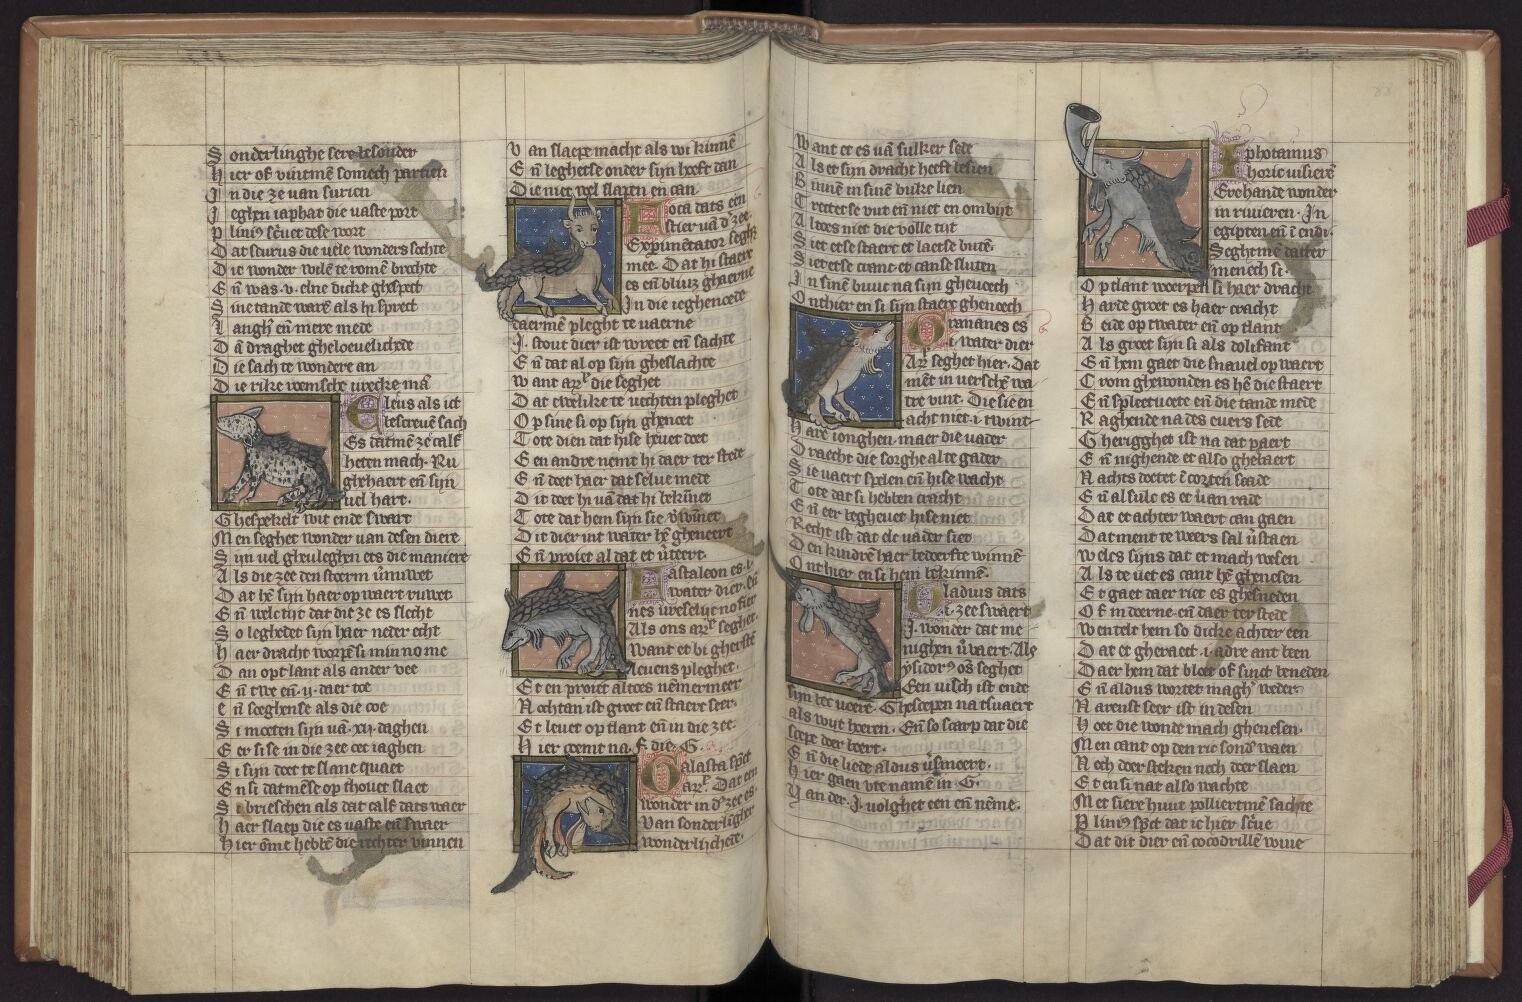 Sonderlinghe sere besonder
Hier of vintmē somech partien
In die ze uan surien
Ieghen iaphat die uaste port
Plini⁹ scͬuet dese wort
Dat scurus die uele wonders sochte
Die wonder wilē te romē brochte
Eñ was .v. elne dicke ghespect
Sine tande warē als hi sprect
Langh eñ mere mede
Dā draghet gheloeuelichede
Die sach te wondere an
Die rike romsche urecke mā
Eleus als ict
bescreuē sach
Es datmē ze calf
heten mach. Ru
ghehaert eñ sijn
uel hart.
Ghespekelt wit ende swart
Men seghet wonder uan desen diere
Sijn uel gheuleghen ets die maniere
Als die zee den storem ūniwet
Dat hē sijn haer op waert ruwet
Eñ welc tijt dat die ze es slecht
So leghedet sijn haer neder echt
Haer dracht worpē si min no me
Dan opt lant als ander vee
Eñ twe eñ .ij. daer toe
eñ soeghense als die coe
Si moeten sijn uā .xij. daghen
Eer sise in die zee oec iaghen
Si sijn doet te slane quaet
En si datmēse op thouet slaet
Si brieschen als dat calf dats waer
Haer slaep die es uaste eñ swaer
Hier ōme hebbē die rechter vinnen
Van slaepe macht als wi kinnē
Eñ leghetse onder sijn hoeft dan
Die niet wel slapen en can
Foca dats een
stier uā d' zee
Expimētator segh3
mee. Dat hi staerc
es eñ bliu3 ghaerne
In die ieghenoede
daermē pleght te uaerne
J. stout dier ist wreet eñ sachte
Eñ dat al op sijn gheslachte
want arͬ die seghet
Dat ewelike te uechten pleghet
Op sine si op sijn ghenoet
Tote dien dat hise heuet doet
Een andre nemt hi daer ter stede
Eñ doet haer dat selue mede
Dit doet hi uā dat hi bekūnet
Tote dat hem sijn sie v̄wūnet
Dit dier int water hē gheneert
Eñ proiet al dat et v̄teert
Fastaleon es .i.
water dier. eñ
nes vreselijc no fier
Als ons arͬ seghet.
Want et bi gherste
leuens pleghet.
Et en proiet altoes nēmermeer
Nochtan ist groet eñ staerc seer.
Et leuet op tlant eñ in die zee
Hier coemt na .F. die .G.
Galasta spct
arͬ. Dat een
wonder in d' zee es
Van sonderlingher
wonderlijchede.
Want et es uā sulker sede
Als et sijn dracht heeft lesien
Binnē in sinē buke lien
Trectet se vut eñ niet en ombijt
Altoes niet die volle tijt
Siet etse staerc et laetse butē.
Siet etse cranc et canse sluten
In sinē buuc na sijn gheuoech
Onthier en si sijn staerc ghenoech
Grananes es
.i. water dier
Arͬ seghet hier. Dat
mēt in uerschē wa
tre vint. Die sie en
acht niet .i. twint
Hare ionghen maer die uader
Draecht die sorghe al te gader
Sie uaert spelen eñ hise wacht
Tote dat si hebben cracht
Eñ eer begheuet hise niet
Recht ist dat elc uader siet
Den kindrē haer bederfte winnē
Onthier en si hem bekinnē.
Gladius dats
.i. zee swaert
J. wonder dat me
nighen v̄uaert. Als
ysidor⁹ os̄ seghet
Een uisch ist ende
sijn bec uoert. Ghescepen na tsuaert
als wijt hoeren. En so scarp dat die
scepe doer boert.
Eñ die liede aldus v̄smoert.
Hier gaen vte namē in .G.
Van der .J. uolghet een eñ nēme.
Iphotamus
horic uisierē
Eyehande wonder
in riuieren. In
egipten eñ ī endi.
Seghmē datter
menech si
Op tlant woerpen si haer dracht
Harde groet es haer cracht
Beide op twater eñ op tlant
Als groet sijn si als dolifant
Eñ hem gaet die snauel opwaert
Crom ghewonden es hē die staert
Eñ spleetuoete eñ die tande mede
Raghende na des euers sede
Gherigghet ist na dat paert
Eñ nighende et also ghebaert
Nachts doetet ī corten scade
Eñ al sulc es et uan rade
Dat et achter waert can gaen
Datment te weers sal v̄staen
Welcs sijns dat et mach wesen
Als te uet es cant hē ghenesen
Et gaet daer riet es ghesneden
Of in doerne eñ daer ter stede
Wentelt hem so dicke achter een
Dat et gheraect .i. adre ant been
Daer hem dat bloet of sinct beneden
Eñ aldus wortet magh' weder
Naernst seer ist in desen
Hoet die wonde mach ghenesen.
Men cant op den ric sond' waen
Noch doer steken noch doer slaen
Et en si nat also wachte
Met siere huut polliertmē sachte
Plini⁹ spct dat ic hier scͬue
Dat dit dier eñ cocodrillē wiue